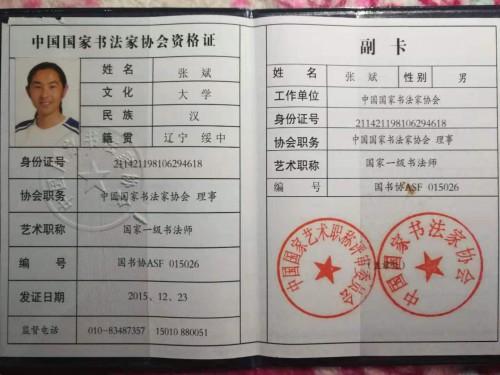 中国国家书法家协会资格证
姓名 张斌
文化 大学
民族 汉
籍贯 辽宁 绥中
身份证号 211421198106294618
协会职务 中国国家书法家协会 理事
艺术职称 国家一级书法师
编号 国书协ASF 015026
发证日期 2015、12、23
监督电话 010-83487357 15010880051
副卡
姓名 张斌 性别 男
工作单位 中国国家书法家协会
身份证号 211421198106294618
协会职务 中国国家书法家协会 理事
艺术职称 国家一级书法师
编号 国书协ASF 015026
中国国家艺术职称评审委员会
中国国家书法家协会